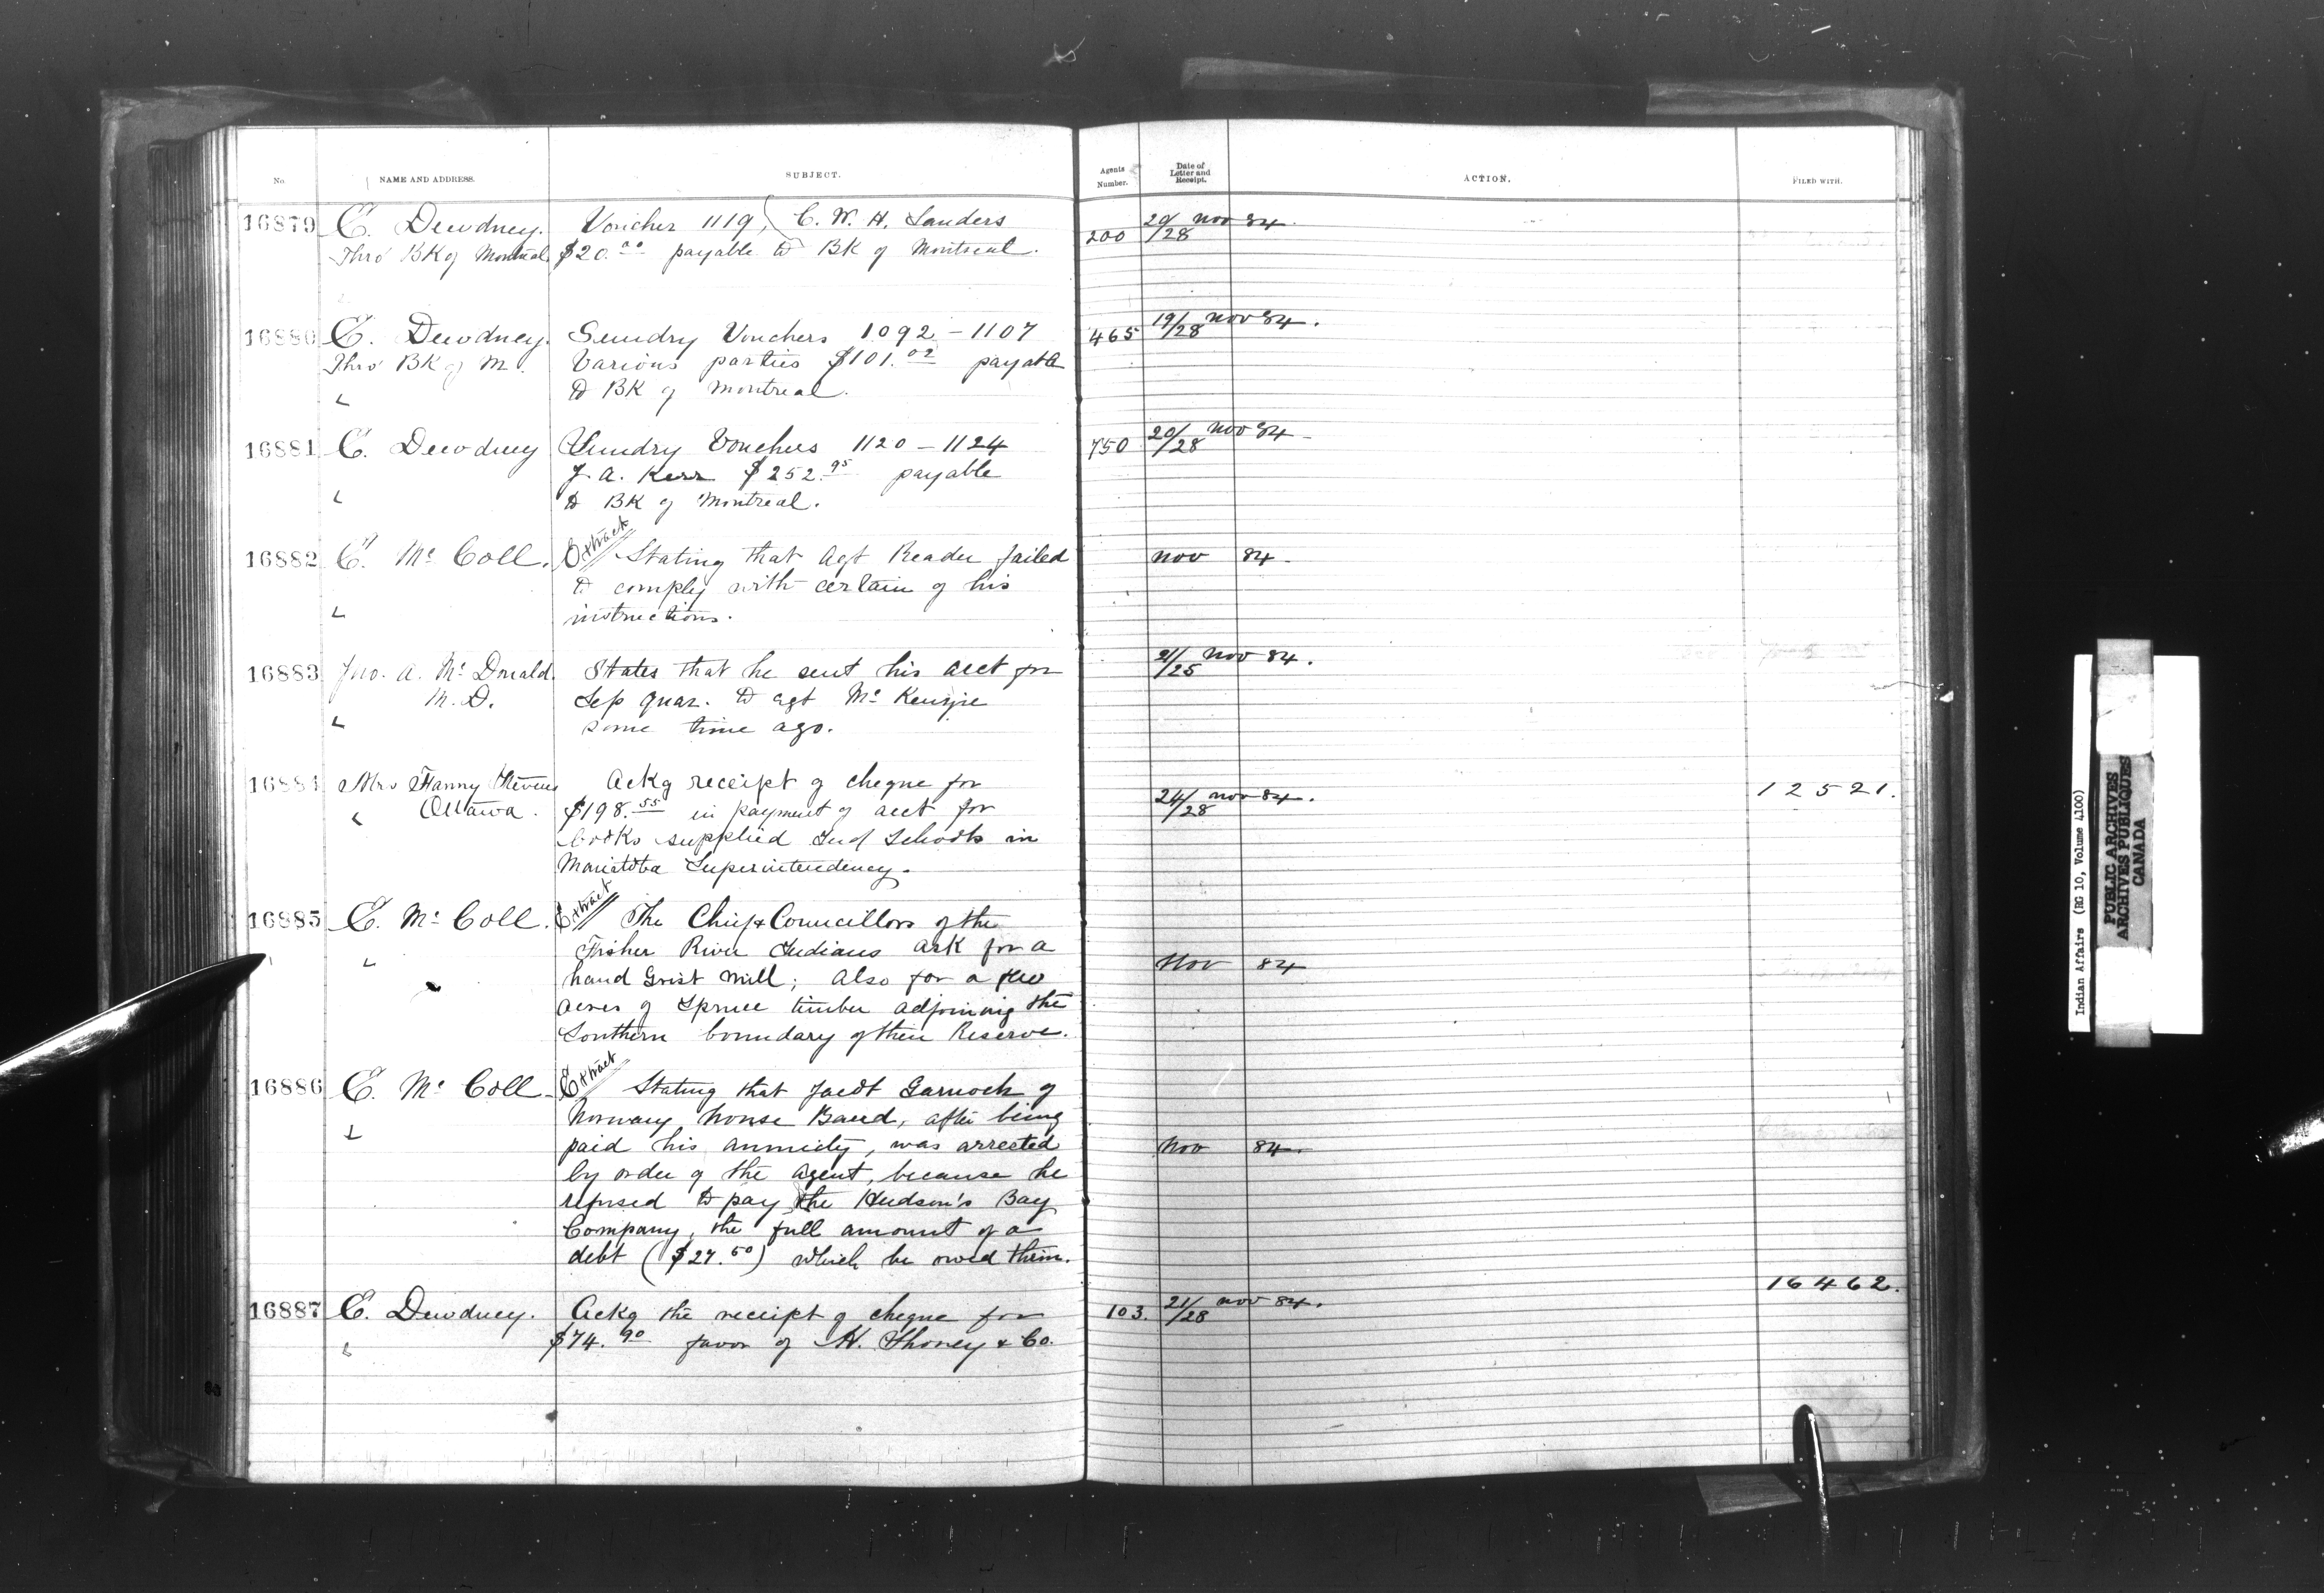 No. NAME AND ADDRESS. SUBJECT. Agents Number. Date of Letter and Receipt. ACTION. FILED WITH.
16879 E. Dewdney. Voucher 1119, C. W. H. Sanders 200 20/28 Nov 84.
Thro' BK of Montreal $20.00 payable to BK of Montreal.
16880 E. Dewdney. Sundry Vouchers 1092 - 1107 465 19/28 Nov 84.
Thro' BK of M. Various parties $101.02 payable
to BK of Montreal.
16881 E. Dewdney Sundry Vouchers 1120 - 1124 750 20/28 Nov 84
J. A. Kerr $252.95 payable
to BK of Montreal.
16882 E. Mc Coll. Extract Stating that Agt Reader failed Nov 84
to comply with certain of his
instructions.
16883 Jno. A. Mc Donald States that he sent his acct for 21/25 Nov 84.
M. D. Sep quar. to agt Mc Kenzie
some time ago.
16884 Mrs Fanny Stevens Ackg receipt of cheque for 24/28 Nov 84. 12521.
Ottawa. $198.55 in payment of acct for
books supplied Ind Schools in
Manitoba Superintendency.
16885 E. Mc Coll. Extract The Chief & Councillors of the
Fisher River Indians ask for a Nov 84
hand Grist Mill; also for a few
acres of Spruce timber adjoining the
Southern boundary of their Reserve.
16886 E. Mc Coll. Extract Stating that Garnoch of
Norway House Band, after being
paid his annuity, was arrested Nov 84
by order of the agent, because he
refused to pay the Hudson's Bay
Company, the full amount of a
debt ($27.50) which he owed them.
16887 E. Dewdney. Ackg the receipt of cheque for 103. 21/28 Nov 84. 16462.
$74.90 favor of H. Shorey & Co.
Indian Affairs (RG 10, Volume 4100)
PUBLIC ARCHIVES
ARCHIVES PUBLIQUES
CANADA